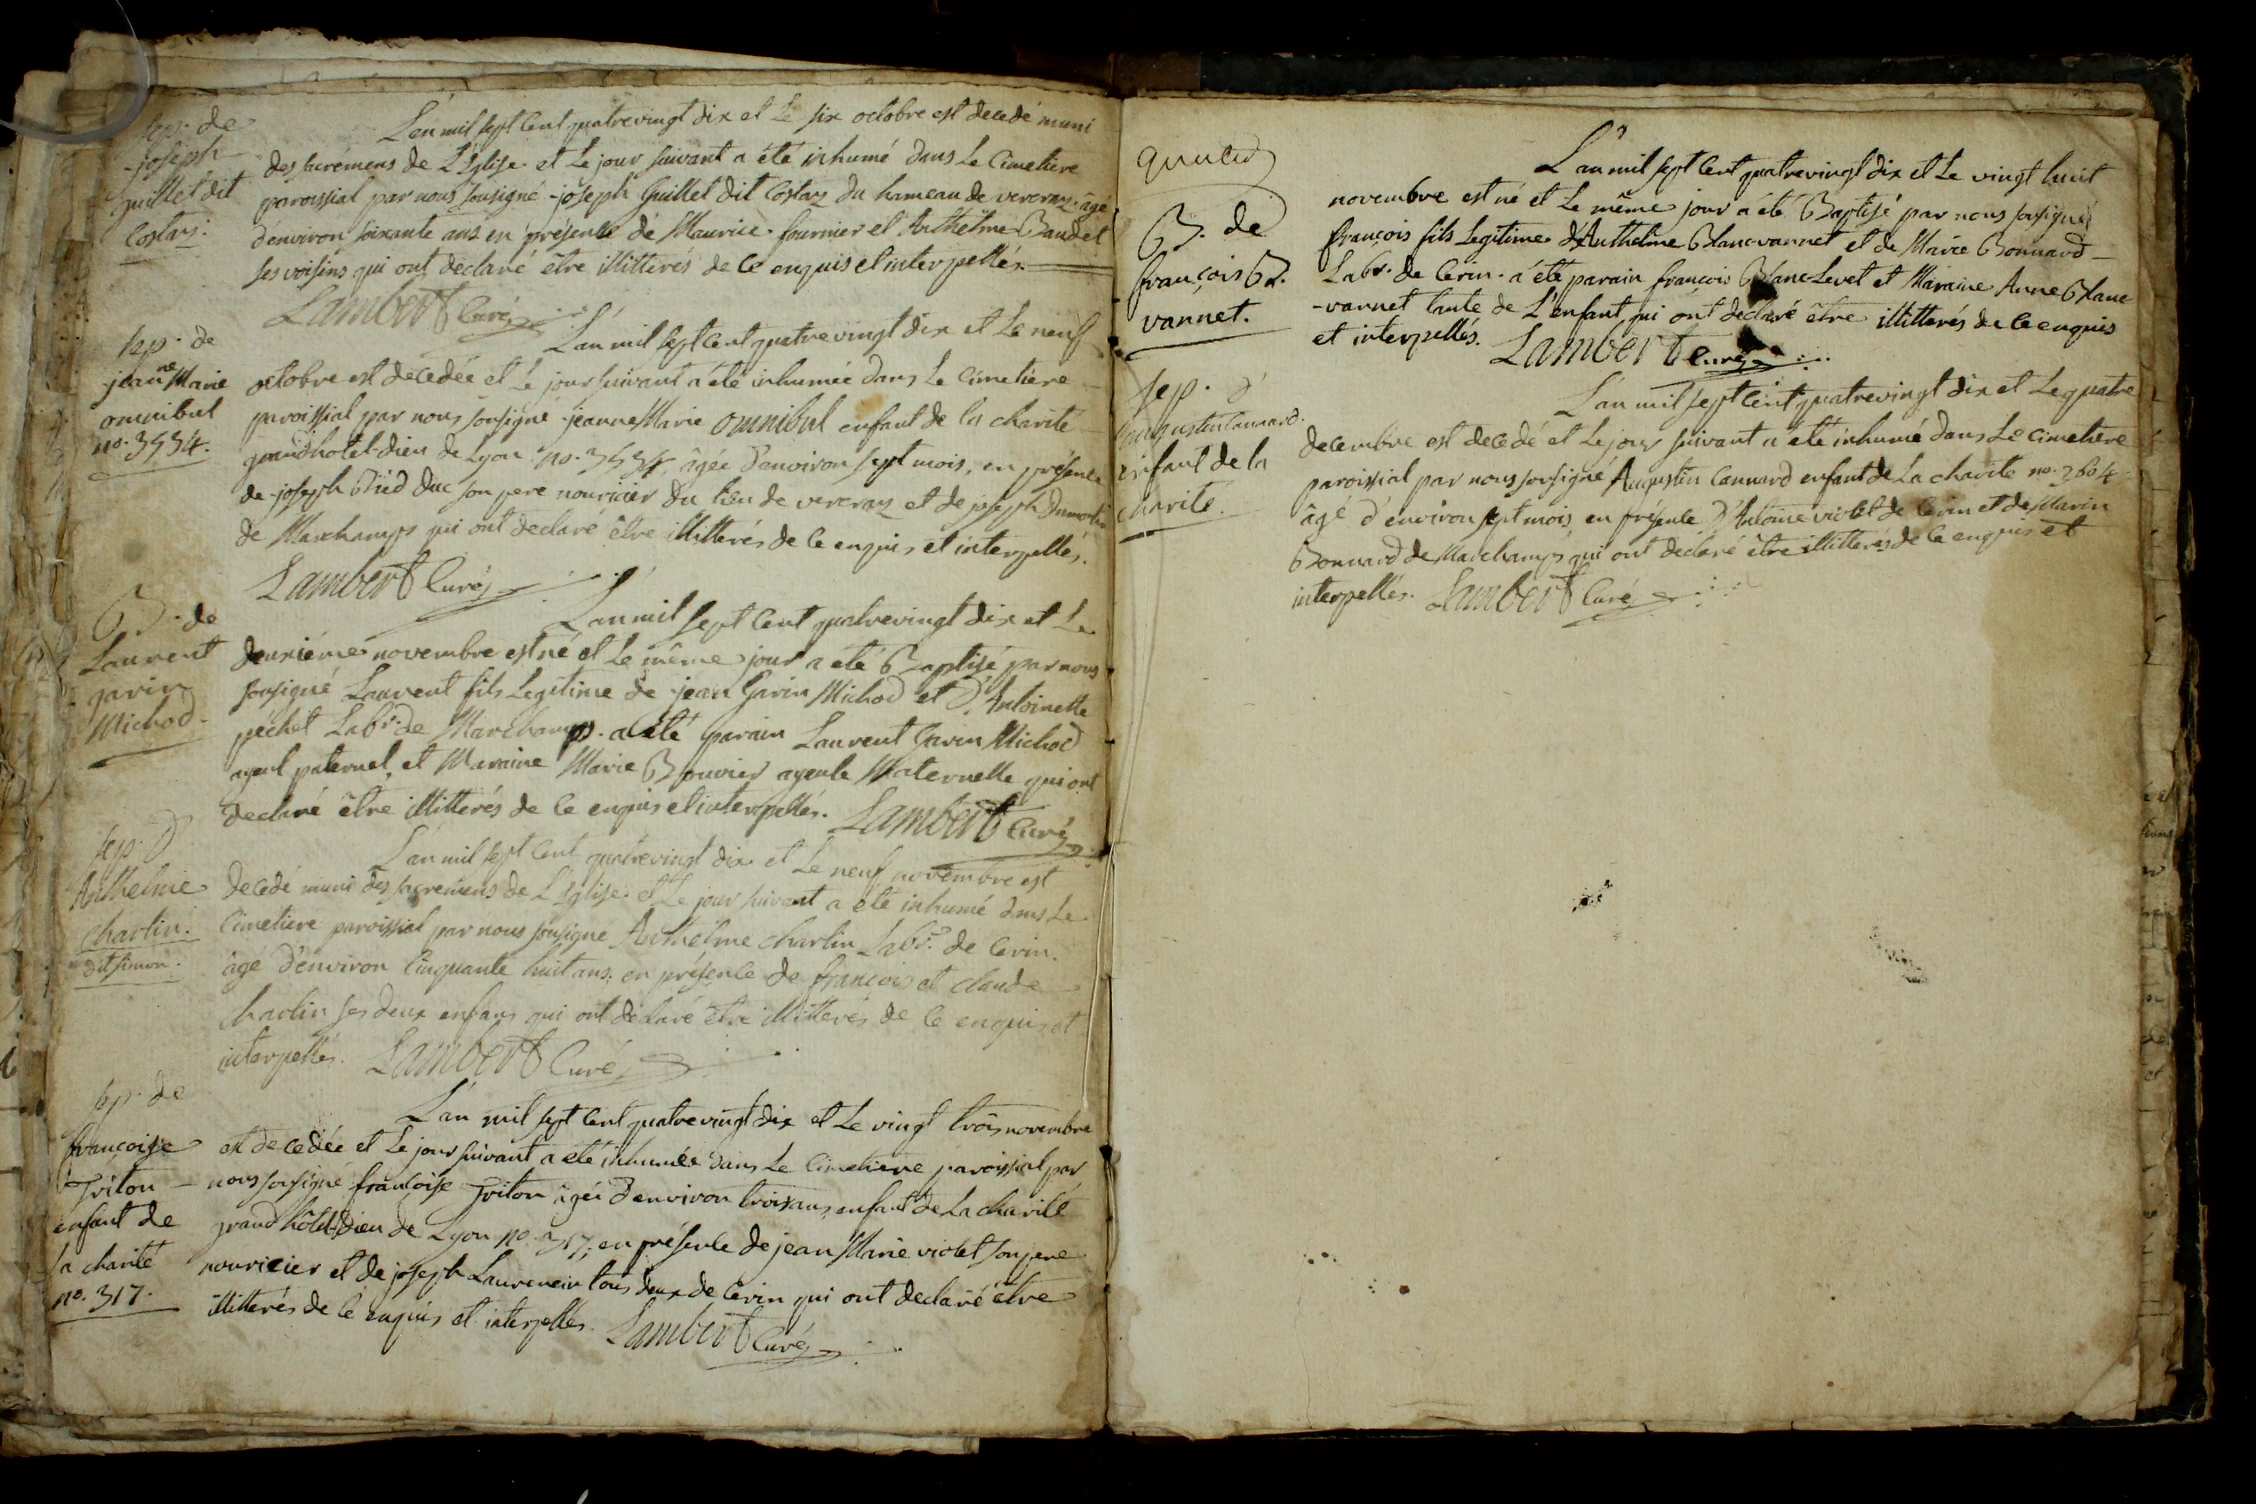 sep. de
joseph
guillet dit
Costaz.
L'an mil sept Cent quatrevingt dix et Le six octobre est decedé muni
des sacrémens de L'Eglise et Le jour suivant a été inhumé dans Le Cimetiere
paroissial par nous sousigné joseph Guillet dit Costaz du hameau de veveraz âgé
d'environ soixante ans en présence de Maurice fournier et Anthelme Baudet
ses voisins qui ont declaré être illitterés de Ce enquis et interpellés.
Lambert Curé
sep. de
jeanne Marie
omnibul
no. 3534.
L'an mil sept Cent quatrevingt dix et Le neuf
octobre est decedée et Le jour suivant a été inhumée dans Le Cimetiere
paroissial par nous sousigné jeanne Marie omnibul enfant de la charité
grand hotel-dieu de Lyon no. 3534 âgée d'environ sept mois, en présence
de joseph duc son pere nouricier du lieu de veveraz et de joseph
de Marchamps qui ont declaré être illitterés de Ce enquis et interpellés.
Lambert Curé
B. de
Laurent
garin
Michod.
L'an mil sept Cent quatrevingt dix et Le
deuxiéme novembre est né et Le même jour a été Baptisé par nous
sousigné Laurent fils Legitime de jean Garin Michod et d'Antoinette
péchet Labr. de Marchamps. a été parain Laurent Garin Michod
ayeul paternel, et Maraine Marie Bouvier ayeule Maternelle qui ont
declaré être illitterés de Ce enquis et interpellés. Lambert Curé
sep. d'
Anthelme
charlin.
dit simon.
L'an mil sept Cent quatrevingt dix et Le neuf novembre est
decedé muni des sacremens de L'Eglise et Le jour suivant a été inhumé dans Le
Cimetiere paroissial par nous sousigné Anthelme charlin Labr. de Cerin.
âgé d'environ Cinquante huit ans, en présence de françois et claude
charlin ses deux enfans qui ont declaré être illitterés de Ce enquis et
interpellés. Lambert Curé
sep. de
françoise
Triton
enfant de
la charité
no. 317.
L'an mil sept Cent quatrevingt dix et Le vingt trois novembre
est decedée et Le jour suivant a été inhumée dans Le Cimetiere paroissial par
nous sousigné françoise Triton âgée d'environ trois ans, enfant de La charité
grand hôtel-Dieu de Lyon no. 317, en présence de jean Marie violet son pere
nouricier et de joseph Laurencin tous deux de Cerin qui ont declaré être
illitterés de Ce enquis et interpellés. Lambert Curé
B. de
françois Bl.
vannet.
L'an mil sept Cent quatrevingt dix et Le vingt huit
novembre est né et Le même jour a été Baptisé par nous sousigné
françois fils Legitime d'Anthelme Blanc-vannet et de Marie Bonnard
Labr. de Cerin. a été parain françois Blanc-Levet et Maraine Anne Blanc
-vannet tante de L'enfant qui ont declaré être illitterés de Ce enquis
et interpellés. Lambert Curé
sep. d'
Augustin Cannard.
enfant de la
charité.
L'an mil sept Cent quatrevingt dix et Le quatre
decembre est decedé et Le jour suivant a été inhumé dans Le Cimetiere
paroissial par nous sousigné Augustin Cannard enfant de La charité no. 3604
âgé d'environ sept mois en présence d'Antoine violet de Cerin et de Marin
Bonnard de Marchamps qui ont declaré être illitterés de Ce enquis et
interpellés. Lambert Curé